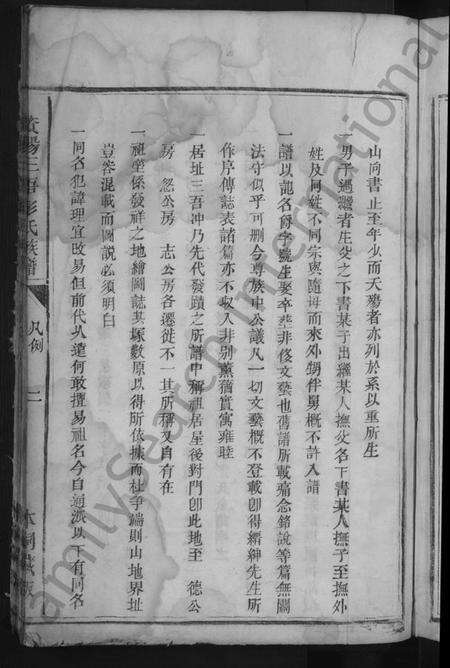 山向書止至年少而夭殤者亦列於系以重所生
一男子過繼者生父之下書某子出繼某人撫父名下書某人撫子至撫外
姓及同姓不同宗與隨母而來外甥伴舅概不許入譜
一譜以記名爵字號生娶卒塟非侈文藝也舊譜所載痛念銘說等篇無關
法守似乎可刪今尊族中公議凡一切文藝概不登載卽得縉紳先生所
作序傳誌表諸篇亦不收入非別薰蕕實寓雍睦
一居址三吾冲乃先代發蹟之所譜中稱祖居屋後對門卽此地至 德公
房 忽公房 志公房各遷徙不一其所稱又自有在
一祖塋係發祥之地繪圖誌其塚數原以得所依據而杜爭端則山地界址
豈容混載而圖說必須明白
一同名犯諱理宜改易但前代久遠何敢擅易祖名今自通派以下有同名
陽三吾彭氏族譜
凡例
二
FamilySearch International